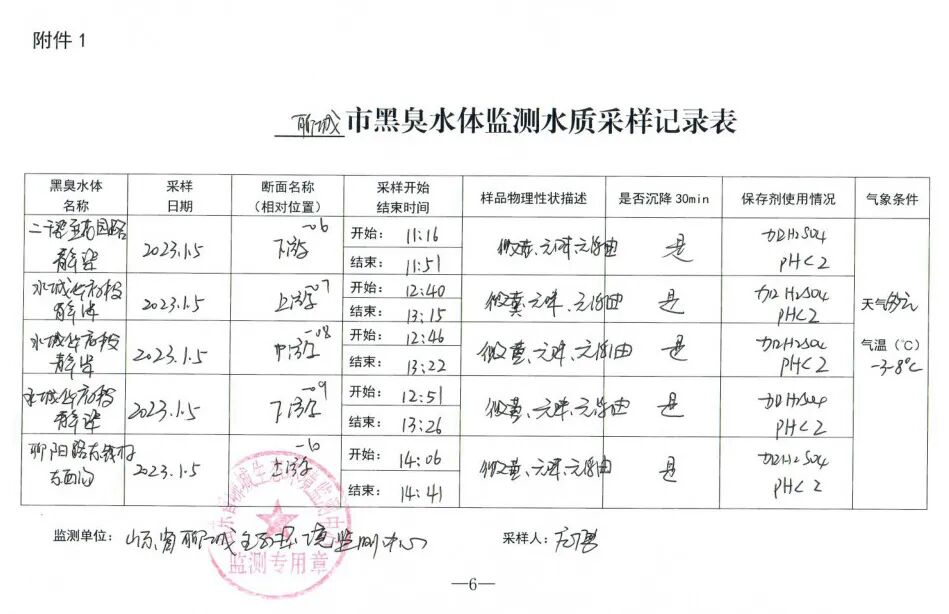 附件 1
聊城市黑臭水体监测水质采样记录表
黑臭水体名称 采样日期 断面名称（相对位置） 采样开始结束时间 样品物理性状描述 是否沉降 30min 保存剂使用情况 气象条件
2023.1.5 下游 -06 开始： 11:16 微黄、无味、无浮油 是 加H2SO4
结束： 11:51 pH<2
水城华府段 2023.1.5 上游 -07 开始： 12:40 微黄、无味、无浮油 是 加H2SO4
结束： 13:15 pH<2
水城华府段 2023.1.5 中游 -08 开始： 12:46 微黄、无味、无浮油 是 加H2SO4
结束： 13:22 pH<2
水城华府段 2023.1.5 下游 -09 开始： 12:51 微黄、无味、无浮油 是 加H2SO4
结束： 13:26 pH<2
聊阳路 2023.1.5 上游 -10 开始： 14:06 微黄、无味、无浮油 是 加H2SO4
结束： 14:41 pH<2
天气
气温（℃）
-3-8℃
监测单位： 山东省聊城生态环境监测中心 采样人：
监测专用章
—6—